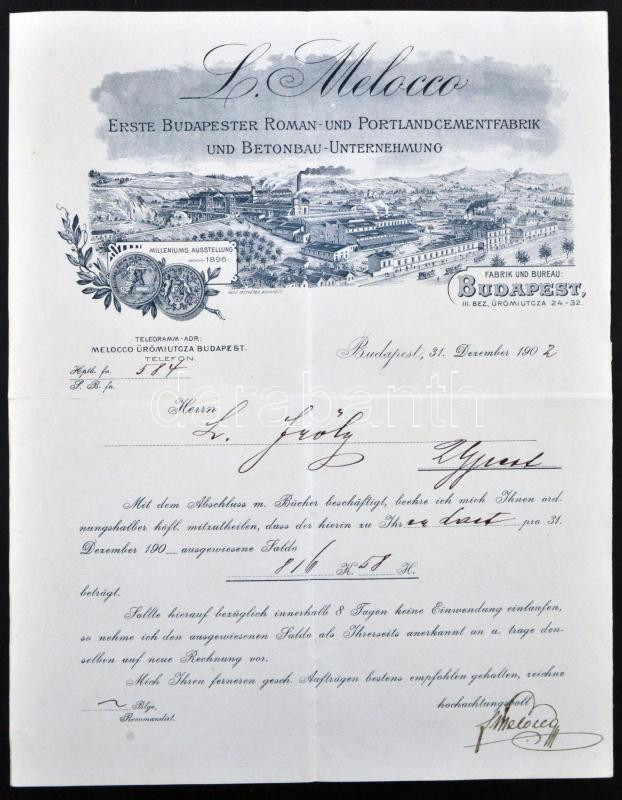 L. Melocco
ERSTE BUDAPESTER ROMAN- UND PORTLANDCEMENTFABRIK
UND BETONBAU-UNTERNEHMUNG
MILLENIUMS AUSSTELLUNG
1896.
FABRIK UND BUREAU:
BUDAPEST,
III. BEZ., ÜRÖMIUTCZA 24-32.
TELEGRAMM-ADR:
MELOCCO ÜRÖMIUTCZA BUDAPEST.
TELEFON.
Budapest, 31. Dezember 1902
Hptb. fo. 584
S. B. fo.
darabanth
Herrn
L.
Mit dem Abschluss m. Bücher beschäftigt, beehre ich mich Ihnen ord-
nungshalber höfl. mitzutheilen, dass der hierin zu Ihren Last pro 31.
Dezember 190 ausgewiesene Saldo
816 K. 58 H.
beträgt.
Sollte hierauf bezüglich innerhalb 8 Tagen keine Einwendung einlaufen,
so nehme ich den ausgewiesenen Saldo als Ihrerseits anerkannt an u. trage den-
selben auf neue Rechnung vor.
Mich Ihren ferneren gesch. Aufträgen bestens empfohlen gehalten, zeichne
Blge. hochachtungsvoll
Recomandirt. LMelocco